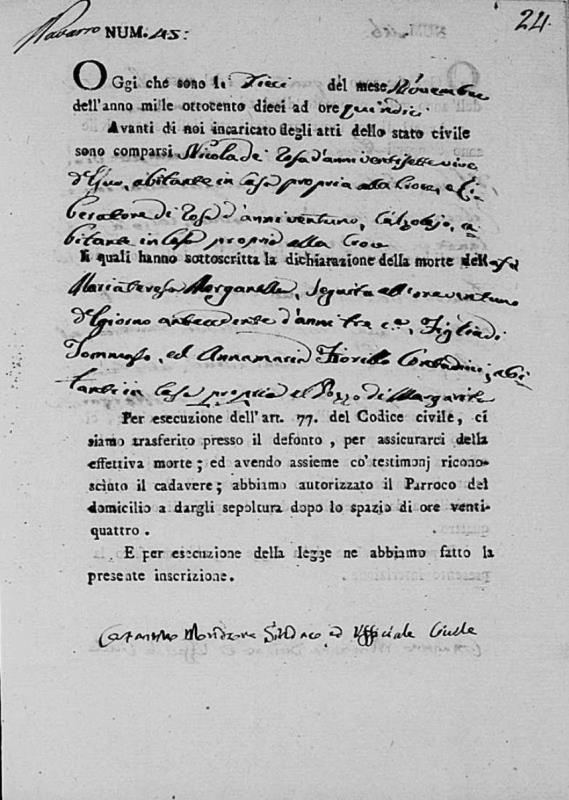 24.
Navarro NUM. 45:
OGgi che sono li Dieci del mese Novembre
dell'anno mille ottocento dieci ad ore quindici
Avanti di noi incaricato degli atti dello stato civile
sono comparsi Nicola de Rosa d'anni ventisette vive
del suo, abitante in Casa propria alla Croce, e Li-
beratore di Rosa d'anni ventuno, Calzolajo, a-
bitante in Casa propria alla Croce
li quali hanno sottoscritta la dichiarazione della morte della
Maria Teresa Morganella, seguita all'ore ventuno
del giorno antecedente d'anni tre c.a, Figlia di
Tommaso, ed Annamaria Fiorillo Contadini, abi-
tanti in Casa propria al Pozzo di Margarita
Per esecuzione dell'art. 77. del Codice civile, ci
siamo trasferito presso il defonto, per assicurarci della
effettiva morte; ed avendo assieme co'testimonj ricono-
sciuto il cadavere; abbiamo autorizzato il Parroco del
domicilio a dargli sepoltura dopo lo spazio di ore venti-
quattro.
E per esecuzione della legge ne abbiamo fatto la
presente inscrizione.
Sindaco ed Ufficiale Civile